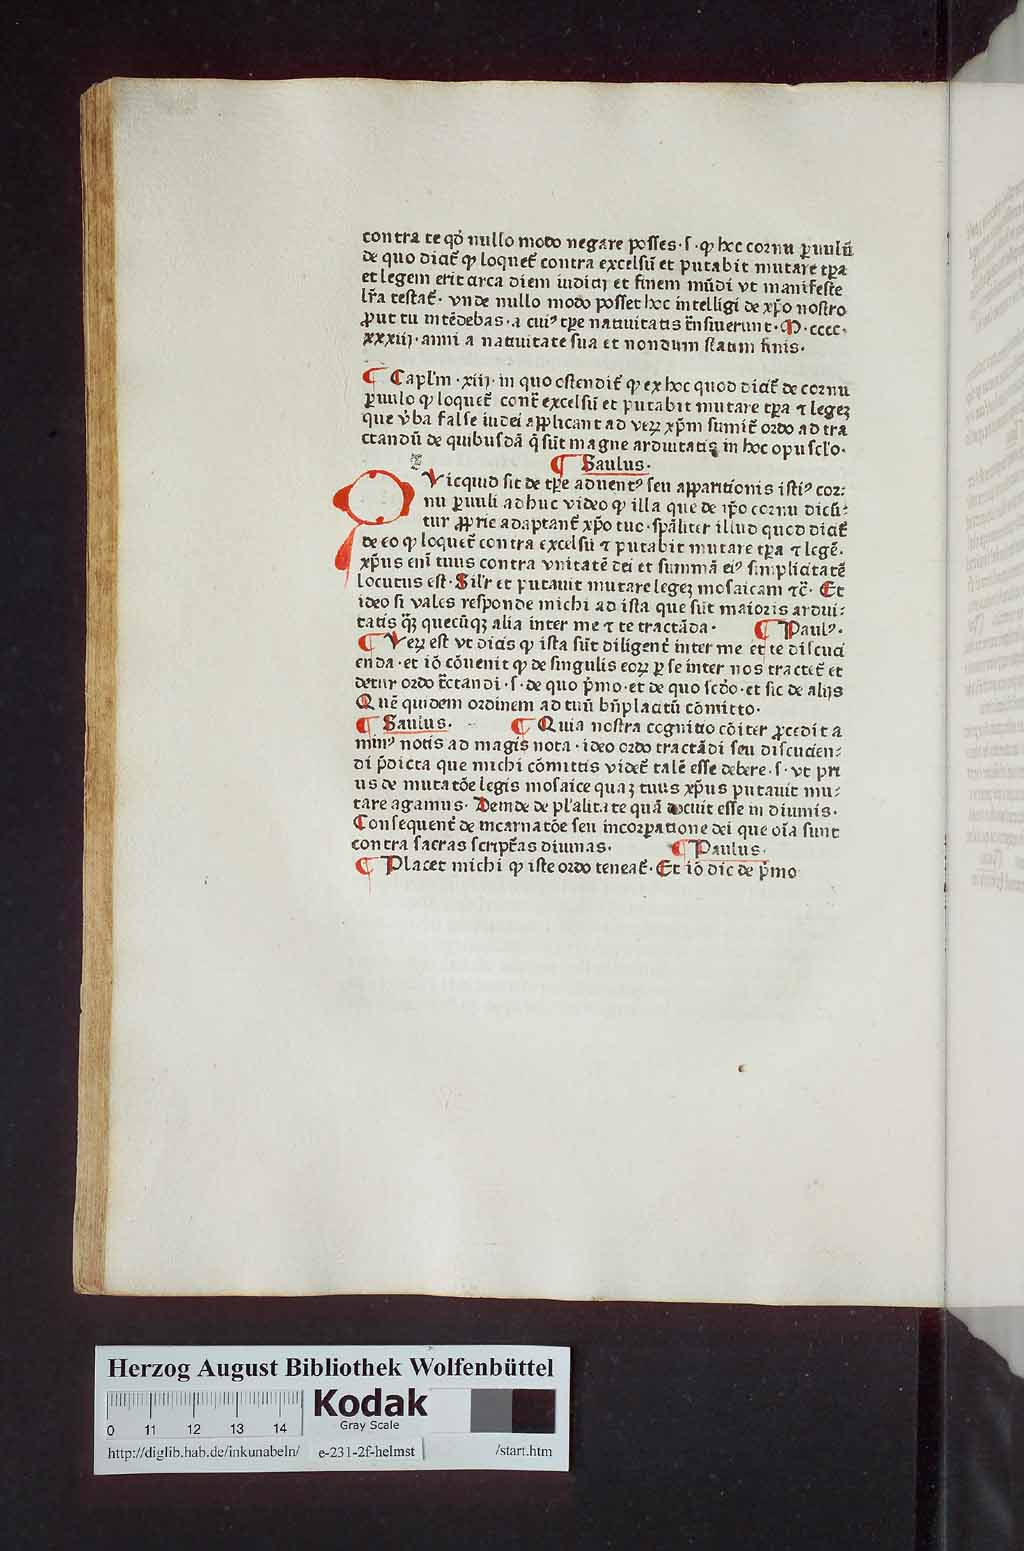 contra te qd̕ nullo modo negare posses·s·ꝙ hec cornu ꝑuulū
de quo dicit̄ ꝙ loquet̄ contra excelsū et putabit mutare tꝑa
et legem erit circa diem iudicij et finem mūdi vt manifeste
lr̄a testat̄· vnde nullo modo posset hoc intelligi de xp̄o nostro
ꝓut tu intēdebas·a cuiꝰ tꝑe natiuitatis t̄nsiuerunt·M·cccc·
xxxiij·anni a natiuitate sua et nondum statim finis·
¶ Capl'm·xiij·in quo ostendit̄ ꝙ ex hoc quod dicit̄ de cornu
ꝑuulo ꝙ loquet̄ cont̄ excelsū et putabit mutare tꝑa ⁊ legeꝫ
que v̄ba false iudei applicant ad veꝝ xp̄m sumit̄ ordo ad tra
ctandū de quibusdā q̄ sūt magne arduitatis in hoc opusclo·
¶ Saulus·
QVicquid sit de tꝑe aduentꝰ seu apparitionis istiꝰ cor:
nu ꝑuuli adhuc video ꝙ illa que de ip̄o cornu dicū:
tur ꝓprie adaptant̄ xp̄o tuo·spāliter illud quod dicit̄
de eo ꝙ loquet̄ contra excelsū ⁊ putabit mutare tꝑa ⁊ legē·
xp̄us enī tuus contra vnitatē dei et summā eiꝰ simplicitatē
locutus est·Sil'r et putauit mutare legeꝫ mosaicam ⁊c̄· Et
ideo si vales responde michi ad ista que sūt maioris ardui:
tatis q̄ꝫ quecūqꝫ alia inter me ⁊ te tractāda· ¶ Paulꝰ·
¶ Veꝝ est vt dicis ꝙ ista sūt diligent̄ inter me et te discuci
enda·et iō cōuenit ꝙ de singulis eoꝝ ꝑ se inter nos tractet̄ et
detur ordo t̄ctandi·s·de quo p̄mo·et de quo scd̄o·et sic de alijs
Quē quidem ordinem ad tuū bn̄placitū cōmitto·
¶ Saulus· ¶ Quia nostra cognitio cōiter ꝓcedit a
minꝰ notis ad magis nota·ideo ordo tractādi seu discucien:
di p̄dicta que michi cōmittis videt̄ talē esse debere·s·vt pri
us de mutatōe legis mosaice quaꝫ tuus xp̄us putauit mu:
tare agamus· Deinde de pl'alitate quā docuit esse in diuinis·
Consequent̄ de incarnatōe seu incorꝑatione dei que oīa sunt
contra sacras script̄as diuinas· ¶ Paulus·
¶ Placet michi ꝙ iste ordo teneat̄·Et iō dic de p̄mo
Herzog August Bibliothek Wolfenbüttel
Kodak
Gray Scale
0 11 12 13 14
http://diglib.hab.de/inkunabeln/ e-231-2f-helmst /start.htm